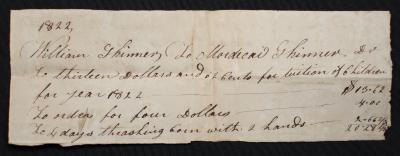 1822,
William Skinner, To Mordecai Skinner Dr
to thirteen Dollars and 62 cents for tuition of 6 children
for year 1822 $13-62
To order for four Dollars 4-00
To 4 days thrashing corn with 2 hands 2-66⅔
20-28⅔